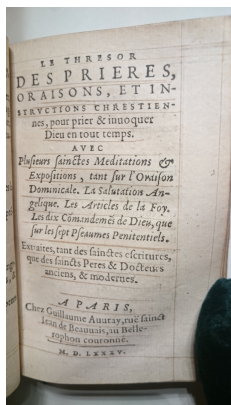 LE THRESOR
DES PRIERES,
ORAISONS, ET IN-
STRVCTIONS CHRESTIEN-
nes, pour prier & inuoquer
Dieu en tout temps.
AVEC
Plusieurs sainctes Meditations &
Expositions, tant sur l'Oraison
Dominicale. La Salutation An-
gelique. Les Articles de la Foy.
Les dix Cōmandemēs de Dieu, que
sur les sept Pseaumes Penitentiels.
Extraites, tant des sainctes escritures,
que des saincts Peres & Docteurs
anciens, & modernes.
A PARIS,
Chez Guillaume Auuray, rue sainct
Iean de Beauuais, au Belle-
rophon couronné.
M. D. LXXXV.